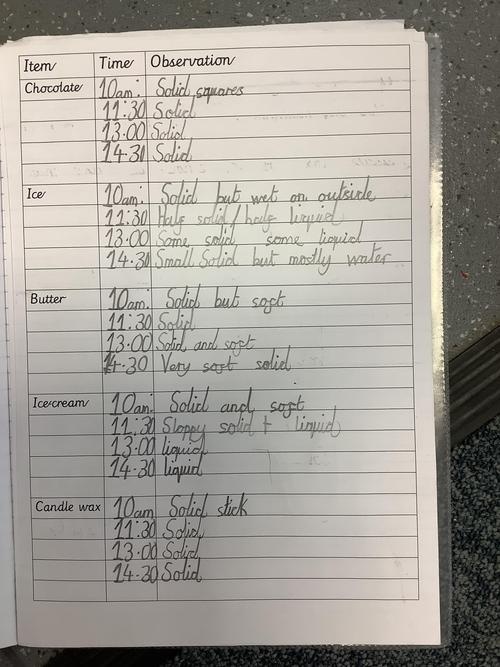 Item Time Observation
Chocolate 10am: Solid squares
11:30 Solid
13:00 Solid
14.31 Solid
Ice 10am: Solid but wet on outside
11:30 Half solid/half liquid
13:00 Some solid some liquid
14.30 Small Solid but mostly water
Butter 10am: Solid but soft
11:30 Solid
13:00 Solid and soft
14-30 Very soft solid
Ice-cream 10am: Solid and soft
11:30 Sloppy solid + liquid
13:00 liquid
14-30 liquid
Candle wax 10am Solid stick
11:30 Solid
13:00 Solid
14-30 Solid